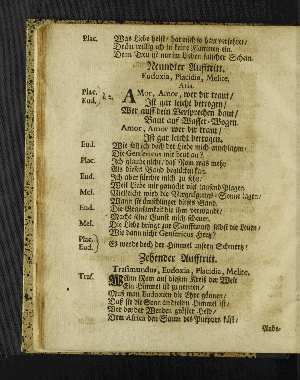 Plac. Was Liebe heist/ hat mich so hart versehret/
Drum willig ich in keine Flammen ein.
Denn Treu ist nur im Lieben falscher Schein.
Neundter Aufftritt.
Eudoxia, Placidia, Melite.
Aria.
Plac. Eud. à 2. AMor, Amor, wer dir traut/
Ist gar leicht betrogen/
Wer auff dein Versprechen baut/
Baut auf Wasser-Wogen.
Amor, Amor, wer dir traut/
Ist gar leicht betrogen.
Eud. Wie soll ich doch der Liebe mich
Die Gensericus mir beut an?
Plac. Ich glaube nicht/ daß Rom was mehr
Als dieses Band beglücken kan.
Eud. Ich aber fürchte mich zu
Weil Liebe mir gemacht viel tausend Plagen.
Mel. Vielleicht wird die Vergnügungs-Sonne lagen/
Wann sie
Eud. Die Grausamkeit die ihm verwandt/
Macht seine Gunst mich scheuen.
Mel. Die Liebe bringt zur Sanfftmuth selbst die Leuen/
Wie dann nicht Gensericus Hertz?
Plac. Eud. Es werde doch der Himmel unsern Schmertz!
Zehender Aufftritt.
Trasimundus, Eudoxia, Placidia, Melite.
Tras. WAnn Rom auf diesem Kreis der Welt
Ein Himmel ist zu nennen/
Muß man Eudoxien die Ehre gönnen/
Daß sie die Sonn an diesem Himmel ist/
Wer der Werden größter Held/
Dem Africa den Saum des Purpurs küst/